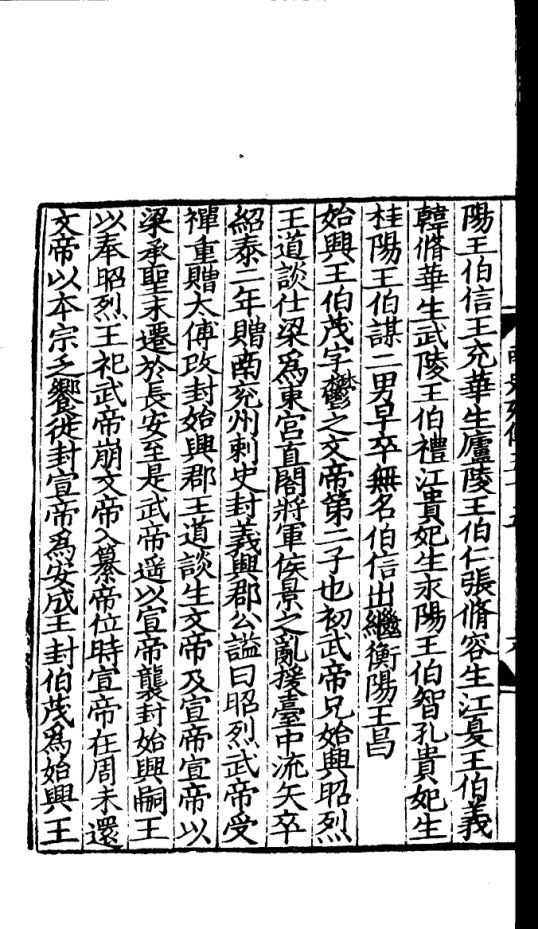 陽王伯信王充華生廬陵王伯仁張脩容生江夏王伯義
韓脩華生武陵王伯禮江貴妃生永陽王伯智孔貴妃生
桂陽王伯謀二男早卒無名伯信出繼衡陽王昌
始興王伯茂字鬱之文帝第二子也初武帝兄始興昭烈
王道談仕梁爲東宮直閤將軍侯景之亂援臺中流矢卒
紹泰二年贈南兖州刺史封義興郡公謚曰昭烈武帝受
禪重贈太傅改封始興郡王道談生文帝及宣帝宣帝以
梁承聖末遷於長安至是武帝遥以宣帝襲封始興嗣王
以奉昭烈王祀武帝崩文帝入纂帝位時宣帝在周未還
文帝以本宗乏饗徙封宣帝爲安成王封伯茂爲始興王